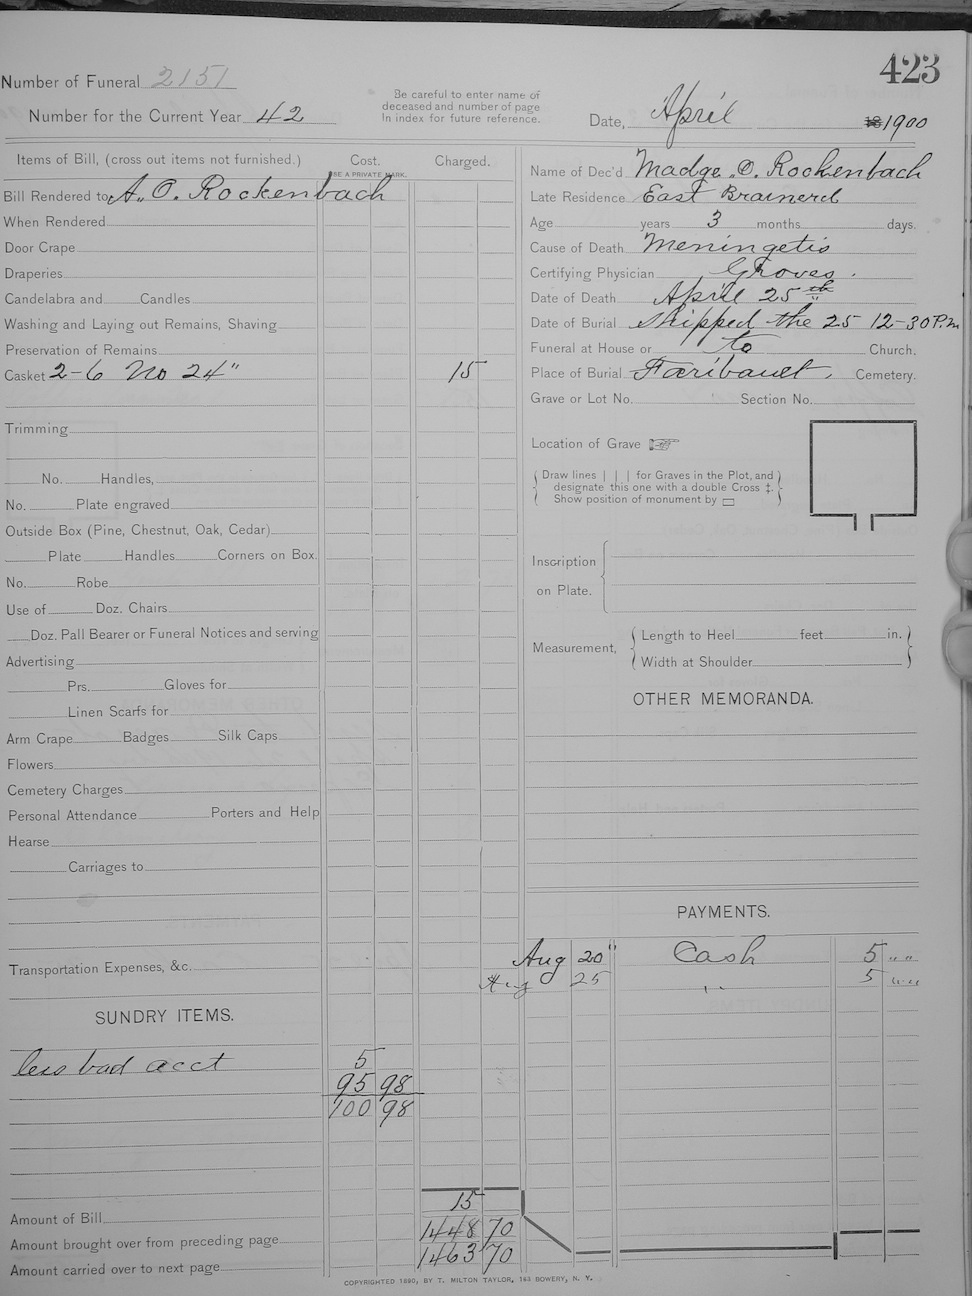 423
Number of Funeral 2151
Number for the Current Year 42
Be careful to enter name of
deceased and number of page
In index for future reference.
Date, April 18 1900
Items of Bill, (cross out items not furnished.) Cost. Charged.
USE A PRIVATE MARK.
Bill Rendered to A. O. Rockenbach
When Rendered
Door Crape
Draperies
Candelabra and Candles
Washing and Laying out Remains, Shaving
Preservation of Remains
Casket 2-6 No 24" 15
Trimming
No. Handles,
No. Plate engraved
Outside Box (Pine, Chestnut, Oak, Cedar)
Plate Handles Corners on Box.
No. Robe
Use of Doz. Chairs
Doz. Pall Bearer or Funeral Notices and serving
Advertising
Prs. Gloves for
Linen Scarfs for
Arm Crape Badges Silk Caps
Flowers
Cemetery Charges
Personal Attendance Porters and Help
Hearse
Carriages to
Transportation Expenses, &c.
SUNDRY ITEMS.
less bad acct 5
95 98
100 98
15
Amount of Bill
1448 70
Amount brought over from preceding page
1463 70
Amount carried over to next page
Name of Dec'd Madge O. Rockenbach
Late Residence East Brainerd
Age years 3 months days.
Cause of Death Meningetis
Certifying Physician Groves.
Date of Death April 25th
Date of Burial shipped the 25 12-30 P.m
Funeral at House or to Church,
Place of Burial Faribault, Cemetery.
Grave or Lot No. Section No.
Location of Grave
Draw lines | | | for Graves in the Plot, and
designate this one with a double Cross ‡.
Show position of monument by ▭
Inscription
on Plate.
Measurement,
Length to Heel feet in.
Width at Shoulder
OTHER MEMORANDA.
PAYMENTS.
Aug 20" Cash 5 " "
Aug 25 " 5 " "
COPYRIGHTED 1890, BY T. MILTON TAYLOR, 163 BOWERY, N. Y.